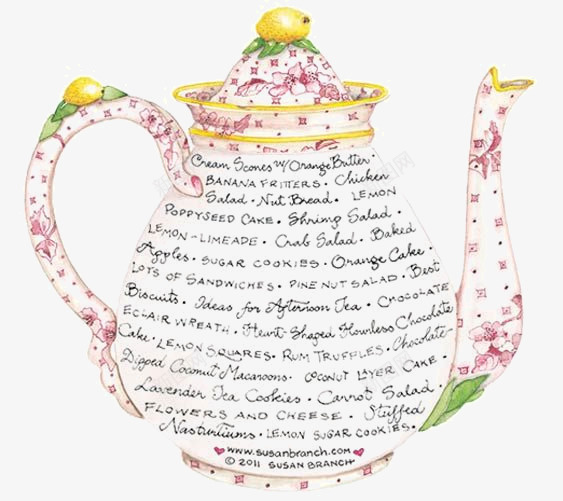 Cream Scones w/ Orange Butter •
BANANA FRITTERS • Chicken
Salad • Nut Bread • LEMON
POPPYSEED CAKE • Shrimp Salad •
LEMON-LIMEADE • Crab Salad • Baked
Apples • SUGAR COOKIES • Orange Cake •
LOTS OF SANDWICHES • PINE NUT SALAD • Best
Biscuits • Ideas for Afternoon Tea • CHOCOLATE
ECLAIR WREATH • Heart-Shaped Flourless Chocolate
Cake • LEMON SQUARES • RUM TRUFFLES • Chocolate-
Dipped Coconut Macaroons • COCONUT LAYER CAKE •
Lavender Tea Cookies • Carrot Salad •
FLOWERS AND CHEESE • Stuffed
Nasturtiums • LEMON SUGAR COOKIES •
♥ www.susanbranch.com ♥
© 2011 SUSAN BRANCH